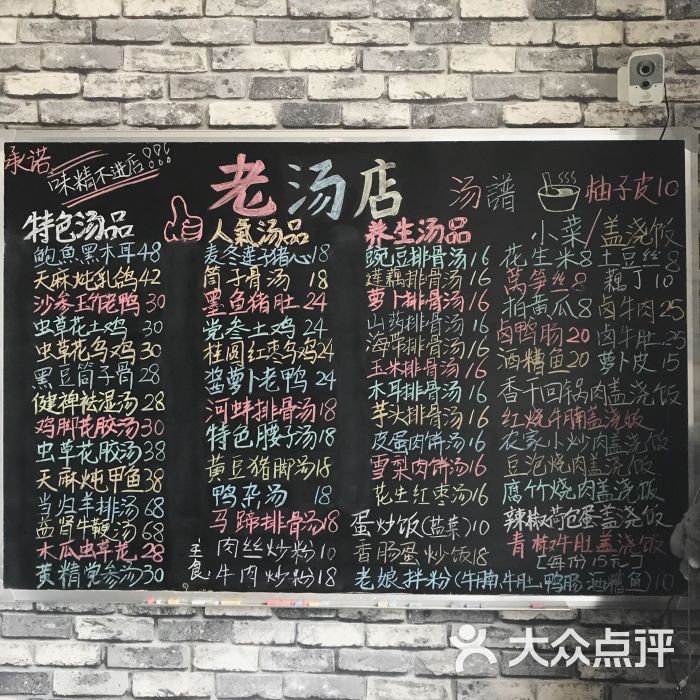 承诺
味精不进店!!!
老汤店
汤谱
柚子皮10
特色汤品
鲍鱼黑木耳48
天麻炖乳鸽42
沙参玉竹老鸭30
虫草花土鸡30
虫草花乌鸡30
黑豆筒子骨28
健裨祛湿汤28
鸡脚花胶汤30
虫草花胶汤38
天麻炖甲鱼38
当归羊排汤68
益肾牛鞭汤68
木瓜虫草花28
黄精党参汤30
人氣汤品
麦冬莲子猪心18
筒子骨汤 18
墨鱼猪肚 24
党参土鸡 24
桂圆红枣乌鸡24
酱萝卜老鸭24
河蚌排骨汤18
特色腰子汤18
黄豆猪脚汤18
鸭杂汤 18
马蹄排骨汤18
主食:
肉丝炒粉10
牛肉炒粉18
养生汤品
豌豆排骨汤16
莲藕排骨汤16
萝卜排骨汤16
山药排骨汤16
海带排骨汤16
玉米排骨汤16
木耳排骨汤16
芋头排骨汤16
皮蛋肉饼汤16
雪梨肉饼汤16
花生红枣汤16
蛋炒饭(盐菜)10
香肠蛋炒饭18
老娘拌粉(牛腩牛肚鸭肠酒糟鱼)10
小菜/盖浇饭
花生米8 土豆丝8
莴笋丝8 藕丁10
拍黄瓜8 卤牛肉25
卤鸭肠20 卤牛肚25
酒糟鱼20 萝卜皮15
香干回锅肉盖浇饭
红烧牛腩盖浇饭
农家小炒肉盖浇饭
豆泡烧肉盖浇饭
腐竹烧肉盖浇饭
辣椒荷包蛋盖浇饭
青椒牛肚盖浇饭
[每份15元]
大众点评